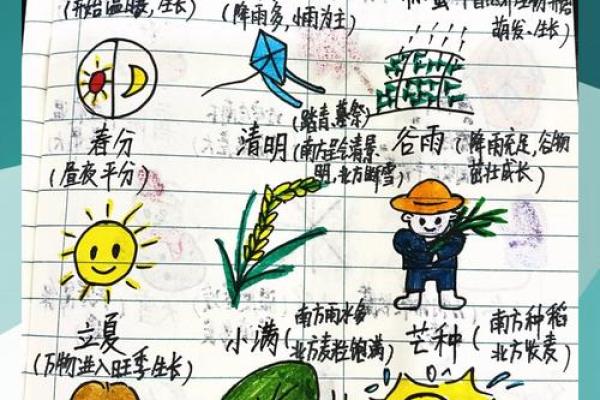 (开始温暖,生长)
(降雨多,小雨为主)
萌发、生长)
春分
(昼夜平分)
清明
(踏青、墓祭)
(南方
明,北方
谷雨
(降雨充足,谷物
茁壮成长)
立夏
(万物进入旺季生长)
小满
(南方雨水多
北方麦粒饱满)
芒种
(南方种稻
北方收麦)